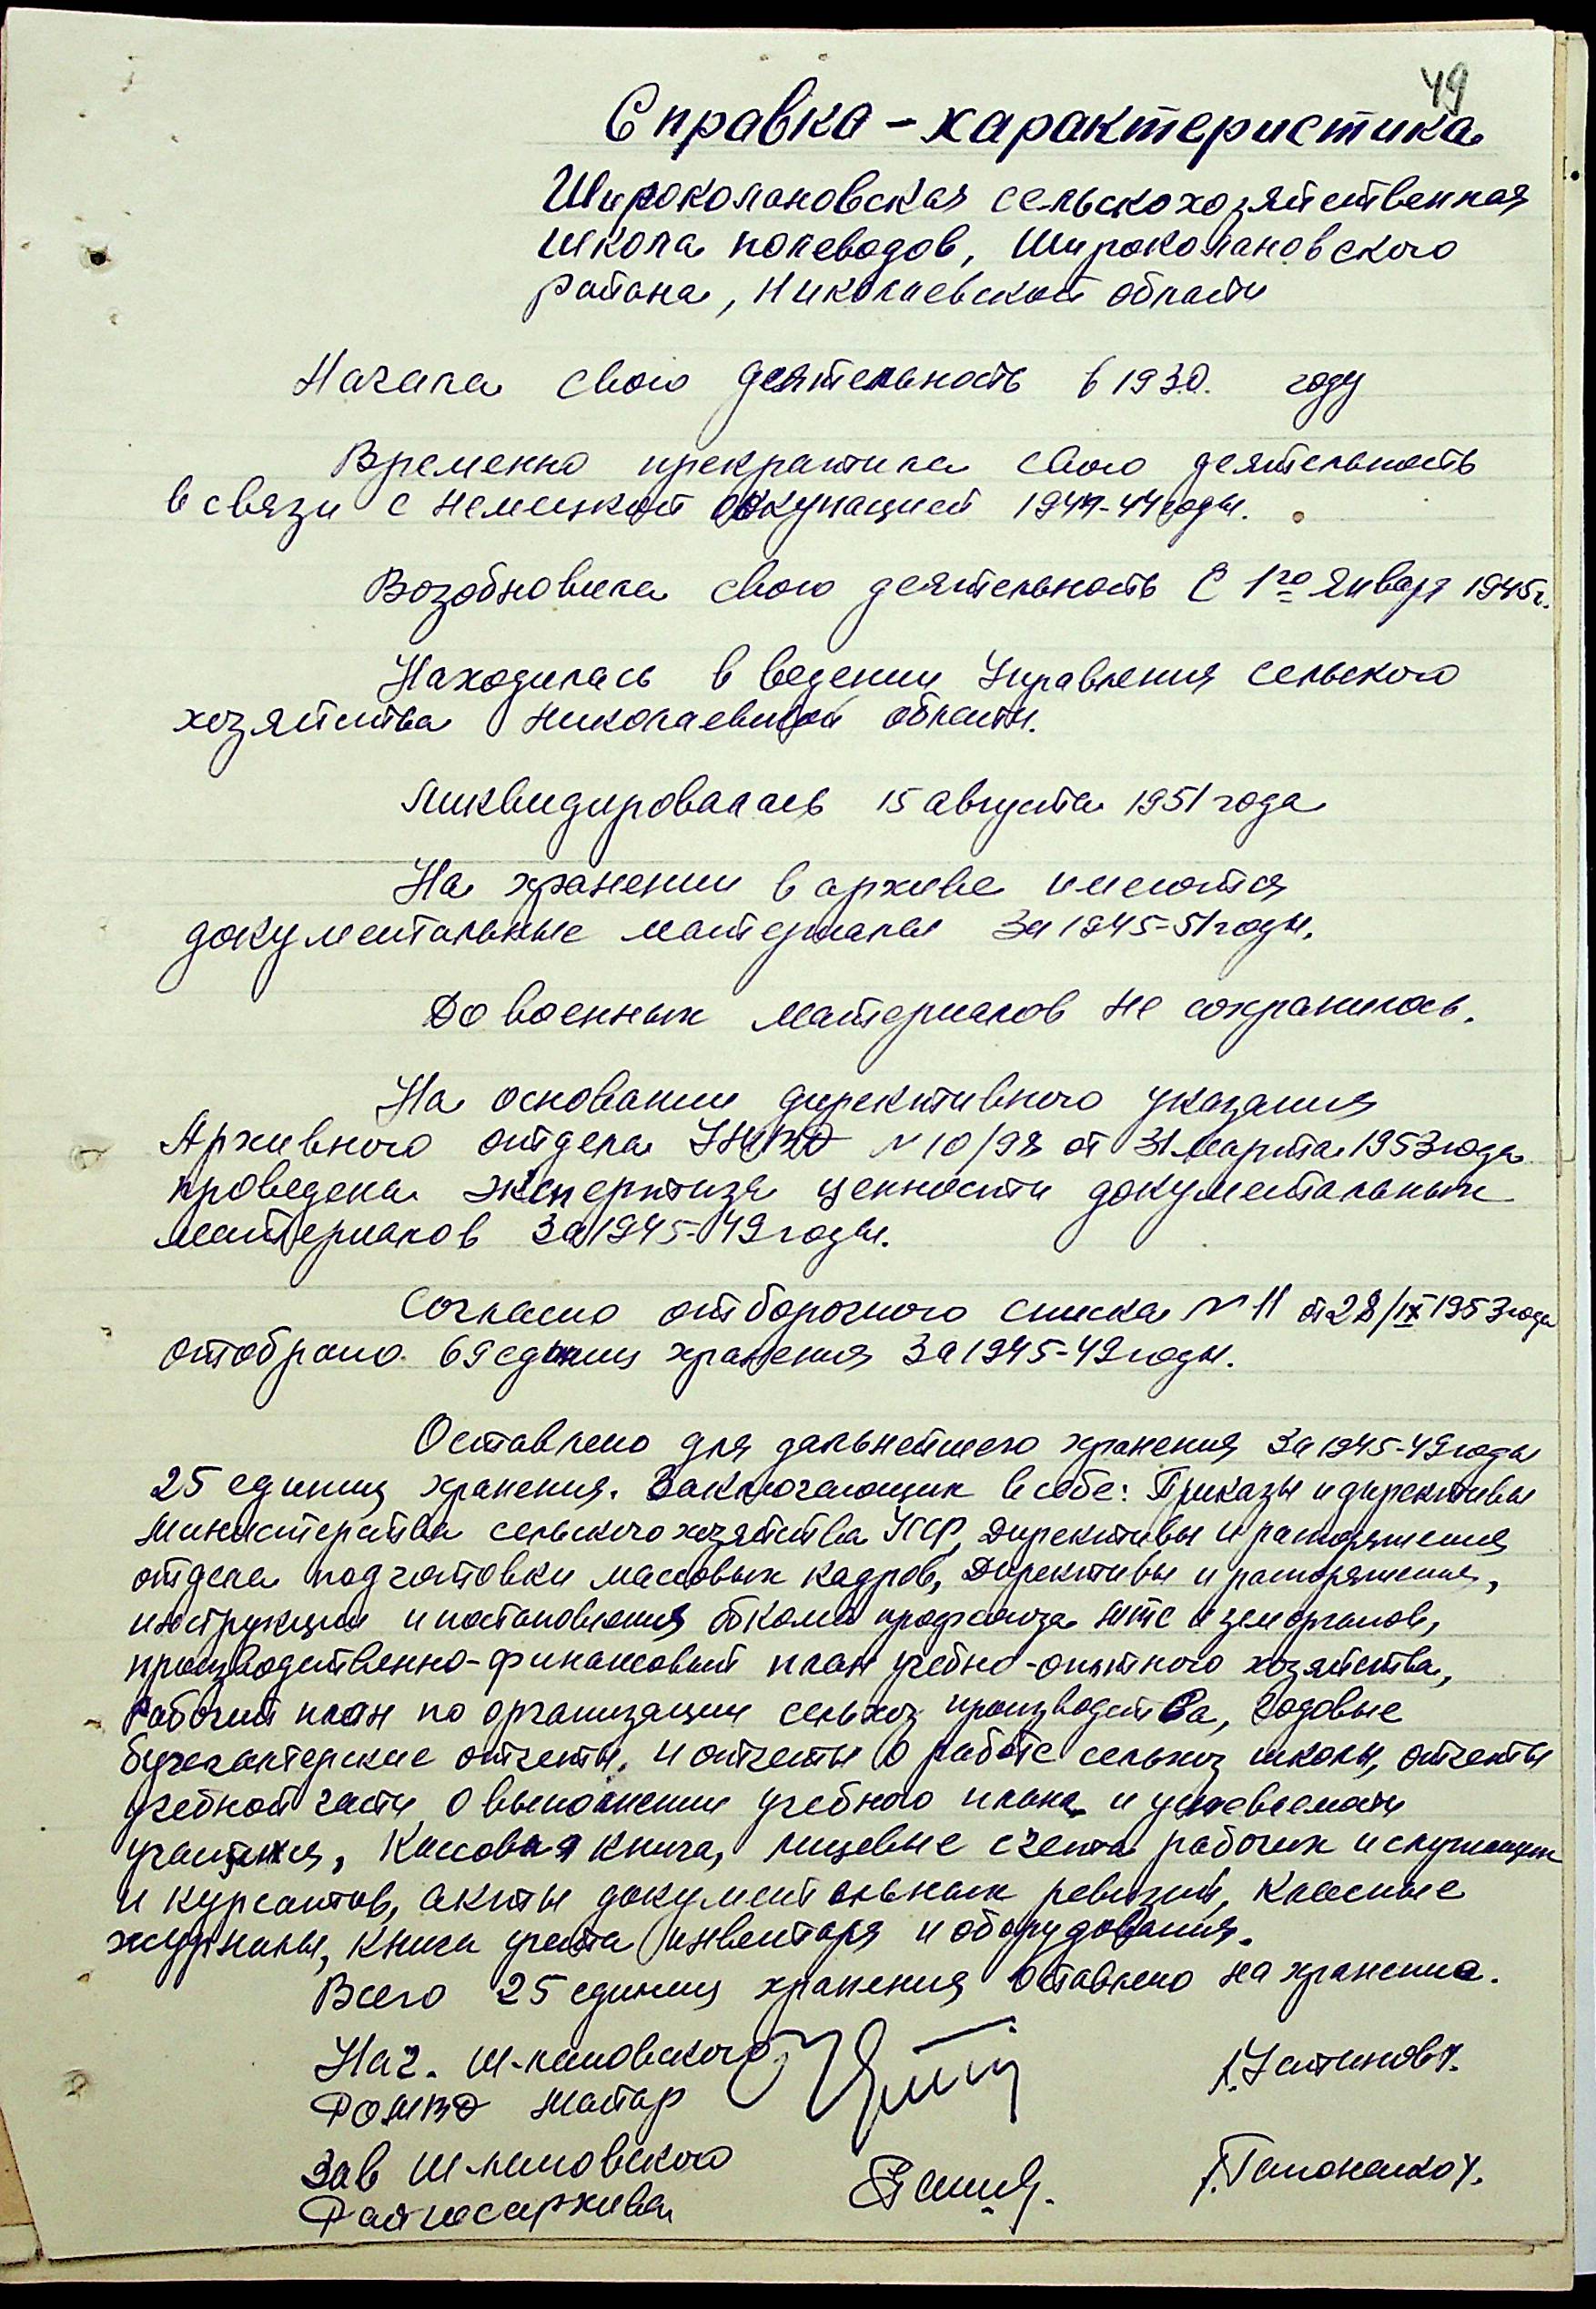 49
Справка - характеристика
Широколановская сельскохозяйственная
школа полеводов, Широколановского
района, Николаевской области
Начала свою деятельность в 1930. году
Временно прекратила свою деятельность
в связи с немецкой оккупацией 1941-44 годы.
Возобновила свою деятельность С 1го января 1945 г.
Находилась в ведении Управления сельского
хозяйства Николаевской области.
Ликвидировалась 15 августа 1951 года
На хранении в архиве имеются
документальные материалы За 1945-51 годы.
До военных материалов не сохранилось.
На основании директивного указания
Архивного отдела УМВД № 10/98 от 31 марта 1953 года
проведена экспертиза ценности документальных
материалов За 1945-49 годы.
Согласно отборочного списка № 11 от 28/IX 1953 года
отобрано 69 единиц хранения За 1945-49 годы.
Оставлено для дальнейшего хранения За 1945-49 годы
25 единиц хранения. Заключающих в себе: Приказы и директивы
Министерства сельского хозяйства УССР, Директивы и распоряжения
отдела подготовки массовых кадров, Директивы и распоряжения,
инструкции и постановления обкома профсоюза МТС и земорганов,
производственно-финансовый план учебно-опытного хозяйства,
Рабочий план по организации сельхоз производства, Годовые
бухгалтерские отчеты, и отчеты о работе сельхоз школы, отчеты
учебной части о выполнении учебного плана и успеваемости
учащихся, Кассовая книга, лицевые счета рабочих и служащих
и курсантов, акты документальных ревизий, классные
журналы, книга учета инвентаря и оборудования.
Всего 25 единиц хранения оставлено на хранение.
Нач. Ш-лановского
РОМВД майор /Устинов/.
Зав Ш-лановского
Райгосархива /Гапоненко/.